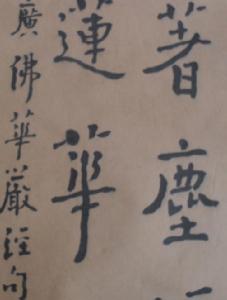 著塵
蓮華
廣佛華嚴經句